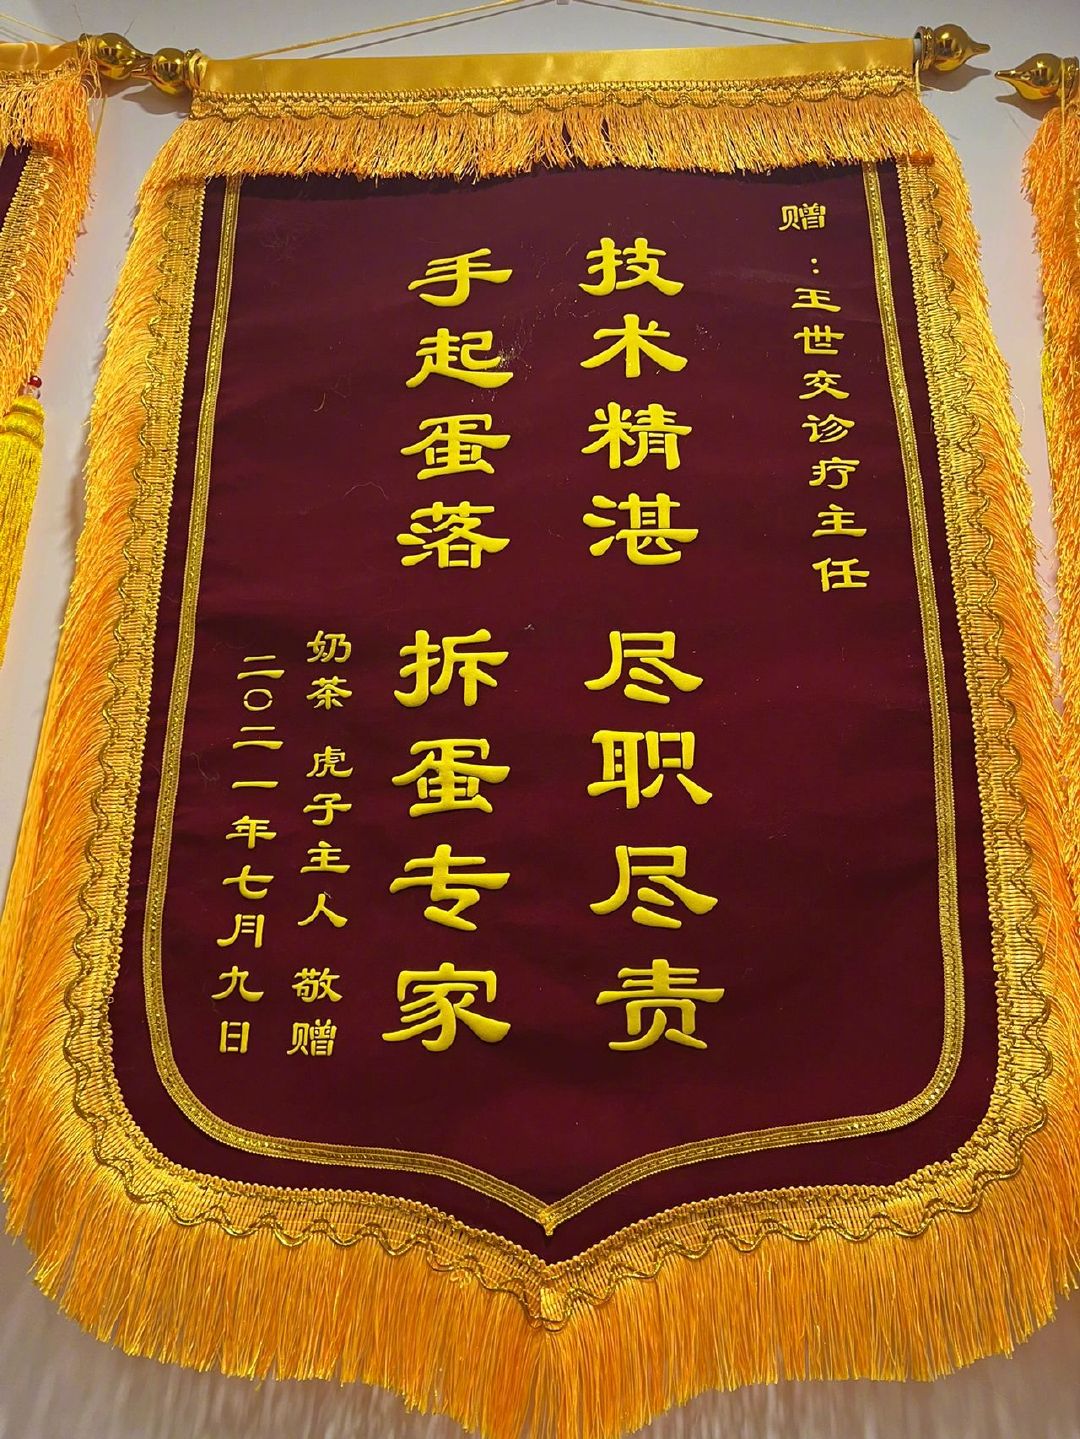 赠：王世交诊疗主任
技术精湛 尽职尽责
手起蛋落 拆蛋专家
奶茶 虎子主人 敬赠
二〇二一年七月九日